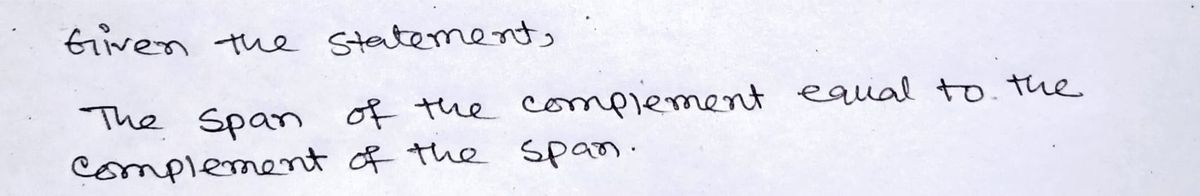 Given the statement,
The span of the complement equal to the
complement of the span.